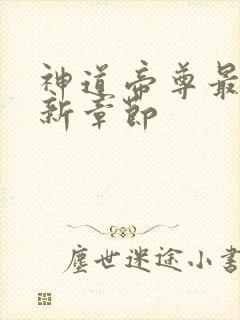 神道帝尊最
新章节
尘世迷途小書